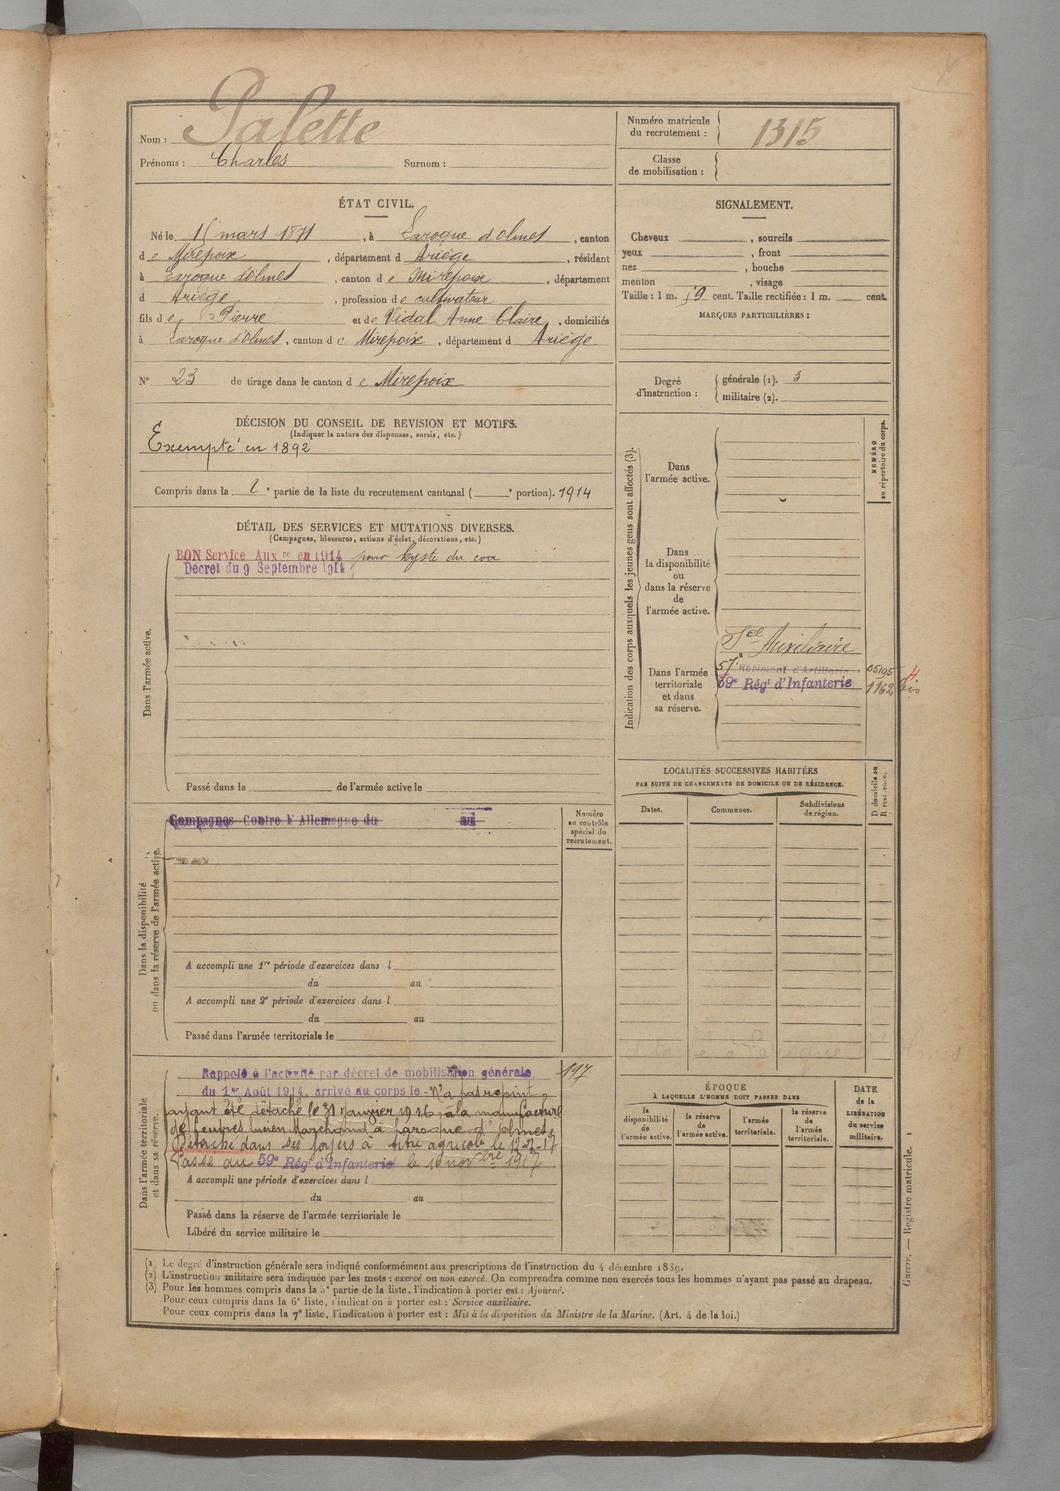 Nom : Palette
Prénoms : Charles Surnom :
Numéro matricule du recrutement : 1315
Classe de mobilisation :
ÉTAT CIVIL.
Né le 15 mars 1871, à Laroque d'Olmes, canton
d e Mirepoix, département d Ariège, résidant
à Laroque d'Olmes, canton d e Mirepoix, département
d Ariège, profession d e cultivateur
fils d e Pierre et de Vidal Anne Claire, domiciliés
à Laroque d'Olmes, canton d e Mirepoix, département d Ariège
N° 23 de tirage dans le canton d e Mirepoix
SIGNALEMENT.
Cheveux , sourcils
yeux , front
nez , bouche
menton , visage
Taille : 1 m. 59 cent. Taille rectifiée : 1 m. cent.
MARQUES PARTICULIÈRES :
Degré d'instruction : générale (1). 3
militaire (2).
DÉCISION DU CONSEIL DE REVISION ET MOTIFS.
(Indiquer la nature des dispenses, sursis, etc.)
Exempté en 1892
Compris dans la e partie de la liste du recrutement cantonal ( e portion). 1914
DÉTAIL DES SERVICES ET MUTATIONS DIVERSES.
(Campagnes, blessures, actions d'éclat, décorations, etc.)
BON Service Aux re en 1914 pour kyste du
Décret du 9 Septembre 1914
Dans l'armée active.
Passé dans la de l'armée active le
Indication des corps auxquels les jeunes gens sont affectés (3).
NUMÉRO au répertoire du corps.
Dans l'armée active.
Dans
la disponibilité
ou
dans la réserve
de
l'armée active.
Auxiliaire
Dans l'armée
territoriale
et dans
sa réserve.
57e Régiment d'Artillerie
59e Régt d'Infanterie 1162 bis
LOCALITÉS SUCCESSIVES HABITÉES
PAR SUITE DE CHANGEMENTS DE DOMICILE OU DE RÉSIDENCE.
Dates. Communes. Subdivisions de région. D domicile ou R résidence.
Campagnes Contre l'Allemagne du au
Numéro
au contrôle
spécial du
recrutement.
Dans la disponibilité
ou dans la réserve de l'armée active.
A accompli une 1re période d'exercices dans l
du au
A accompli une 2e période d'exercices dans l
du au
Passé dans l'armée territoriale le
Dans l'armée territoriale
et dans sa réserve.
Rappelé à l'activité par décret de mobilisation générale 197
du 1er Août 1914, arrivé au corps le - N'a pas rejoint,
ayant été détaché le 31 Janvier 1916, à la manufacture
Lucien Marchand à Laroque d'Olmes
Détaché dans ses foyers à titre agricole le 12-7-17
Passé au 59e Régt d'Infanterie le 10 novbre 1917
A accompli une période d'exercices dans l
du au
Passé dans la réserve de l'armée territoriale le
Libéré du service militaire le
ÉPOQUE
À LAQUELLE L'HOMME DOIT PASSER DANS
la disponibilité de l'armée active.
la réserve de l'armée active.
l'armée territoriale.
la réserve de l'armée territoriale.
DATE de la LIBÉRATION du service militaire.
Guerre. — Registre matricule. 1
(1) Le degré d'instruction générale sera indiqué conformément aux prescriptions de l'instruction du 4 décembre 1889.
(2) L'instruction militaire sera indiquée par les mots : exercé ou non exercé. On comprendra comme non exercés tous les hommes n'ayant pas passé au drapeau.
(3) Pour les hommes compris dans la 5e partie de la liste, l'indication à porter est : Ajourné.
Pour ceux compris dans la 6e liste, l'indication à porter est : Service auxiliaire.
Pour ceux compris dans la 7e liste, l'indication à porter est : Mis à la disposition du Ministre de la Marine. (Art. 4 de la loi.)